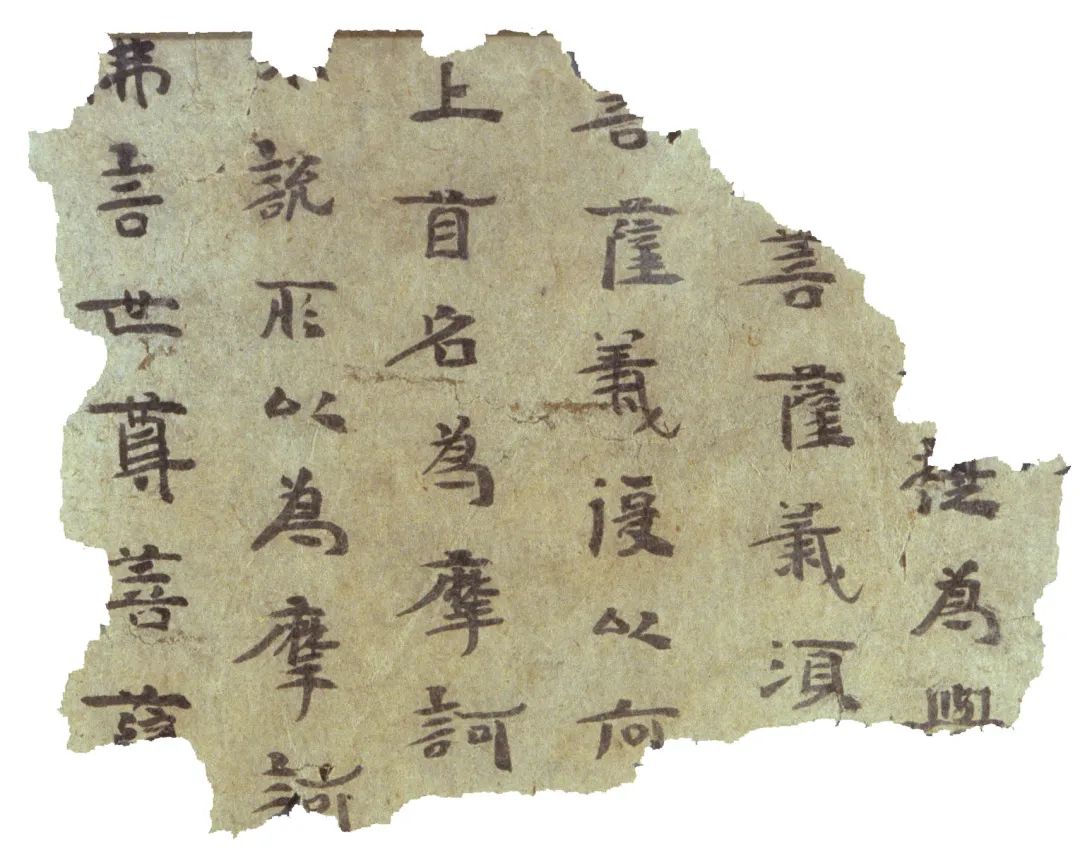 為
菩薩義須
菩薩義復以何
上首名為摩訶
說所以為摩訶
佛言世尊菩薩